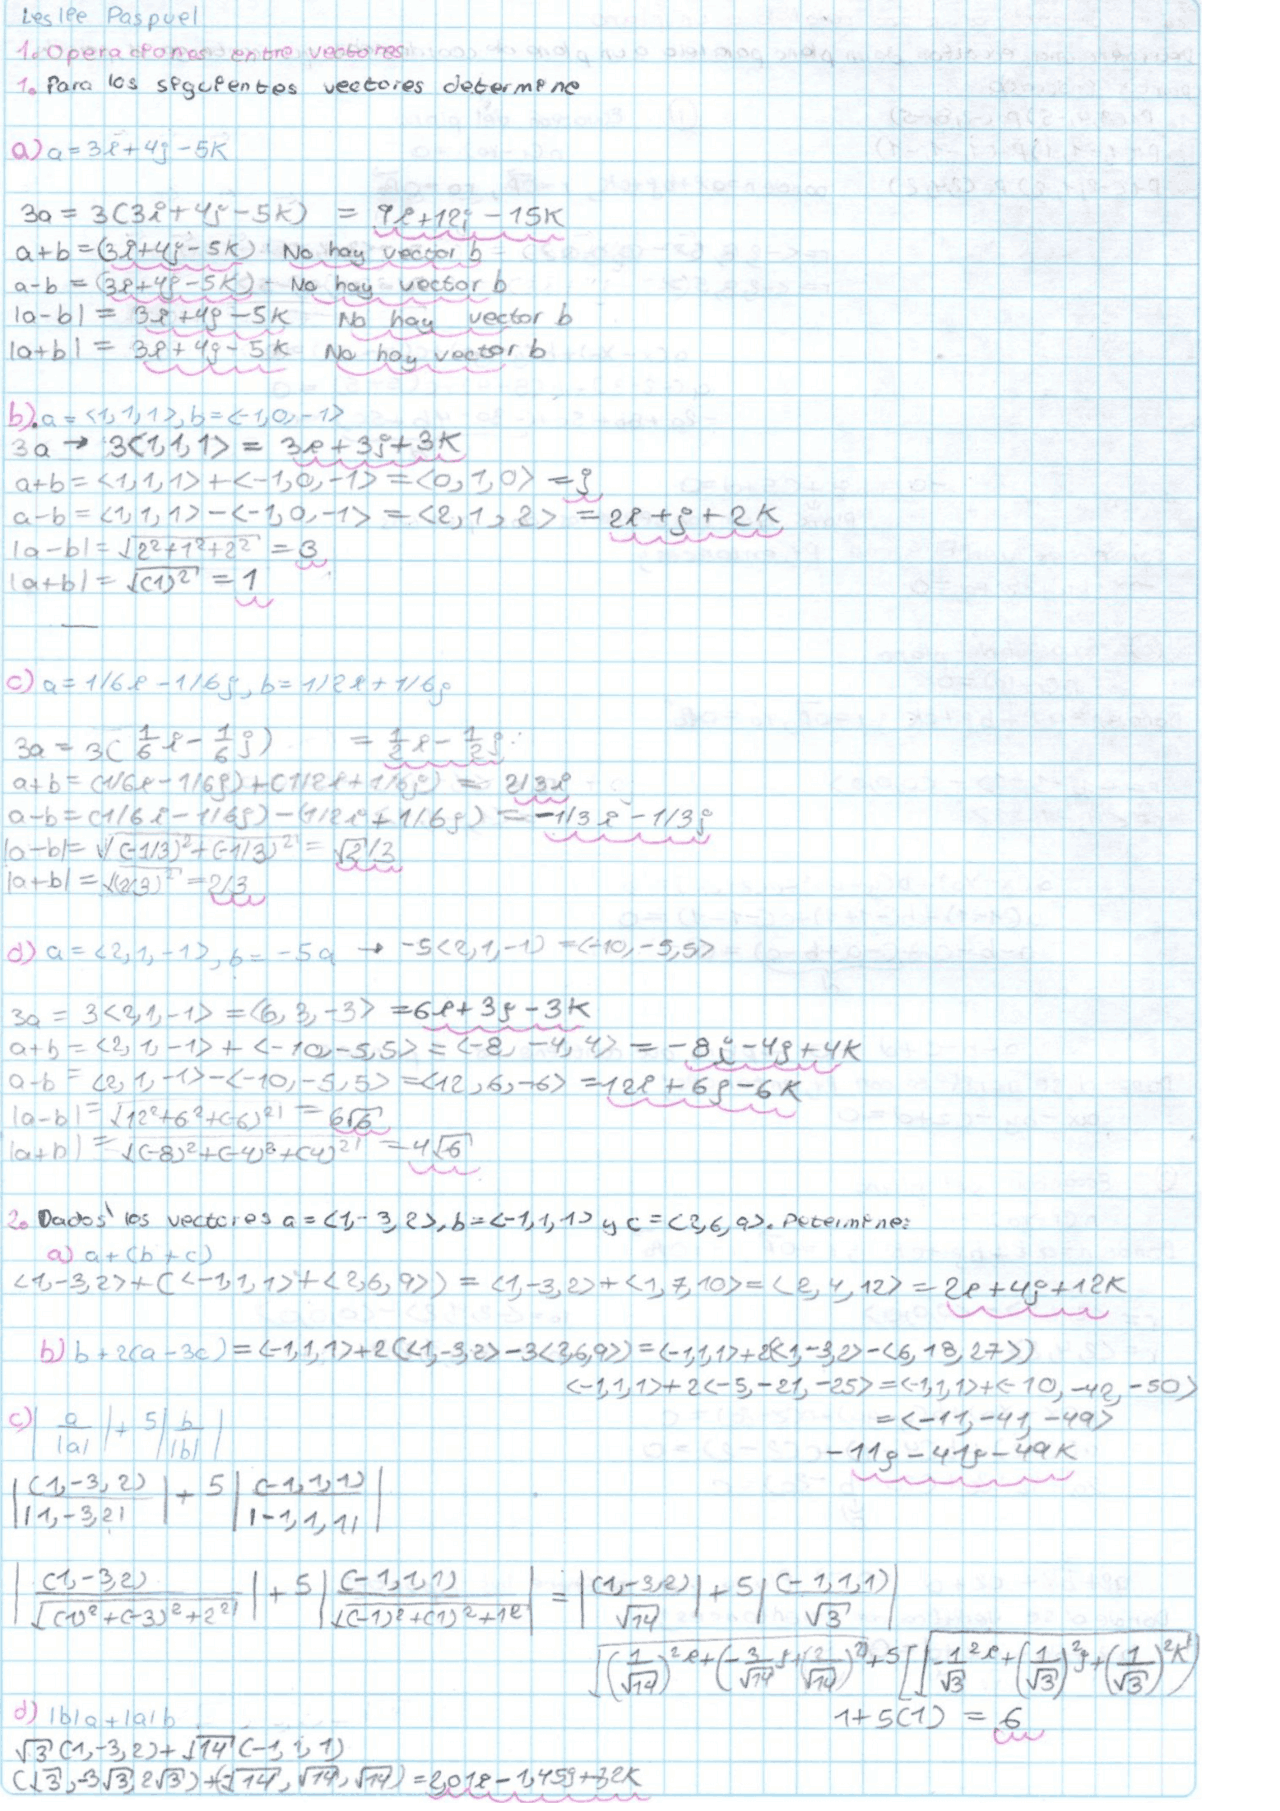 Leslie Paspuel
1. Operaciones entre vectores
1. Para los siguientes vectores determine
a) a = 3i+4j-5K
3a = 3(3i+4j-5K) = 9i+12j-15K
a+b = (3i+4j-5K) No hay vector b
a-b = (3i+4j-5K) - No hay vector b
|a-b| = 3i+4j-5K No hay vector b
|a+b| = 3i+4j-5K No hay vector b
b). a = <1,1,1>, b = <-1,0,-1>
3a → 3<1,1,1> = 3i+3j+3K
a+b = <1,1,1> + <-1,0,-1> = <0,1,0> = j
a-b = <1,1,1> - <-1,0,-1> = <2,1,2> = 2i+j+2K
|a-b| = √(2²+1²+2²) = 3
|a+b| = √((1)²) = 1
c) a = 1/6i - 1/6j, b = 1/2i + 1/6j
3a = 3(1/6 i - 1/6 j) = 1/2 i - 1/2 j
a+b = (1/6i - 1/6j) + (1/2i + 1/6j) = 2/3i
a-b = (1/6i - 1/6j) - (1/2i + 1/6j) = -1/3i - 1/3j
|a-b| = √((-1/3)²+(-1/3)²) = √2/3
|a+b| = √((2/3)²) = 2/3
d) a = <2,1,-1>, b = -5a → -5<2,1,-1> = <-10,-5,5>
3a = 3<2,1,-1> = <6,3,-3> = 6i+3j-3K
a+b = <2,1,-1> + <-10,-5,5> = <-8,-4,4> = -8j-4j+4K
a-b = <2,1,-1> - <-10,-5,5> = <12,6,-6> = 12i+6j-6K
|a-b| = √(12²+6²+(-6)²) = 6√6
|a+b| = √((-8)²+(-4)²+(4)²) = 4√6
2. Dados los vectores a = <1,-3,2>, b = <-1,1,1> y c = <2,6,9>. Determine:
a) a+(b+c)
<1,-3,2> + (<-1,1,1> + <2,6,9>) = <1,-3,2> + <1,7,10> = <2,4,12> = 2i+4j+12K
b) b+2(a-3c) = <-1,1,1>+2(<1,-3,2>-3<2,6,9>) = <-1,1,1>+2(<1,-3,2>-<6,18,27>)
<-1,1,1>+2<-5,-21,-25> = <-1,1,1>+<-10,-42,-50>
= <-11,-41,-49>
-11j-41j-49K
c) |a/|a|| + 5|b/|b||
|(1,-3,2)/|1,-3,2|| + 5|(-1,1,1)/|-1,1,1||
|(1,-3,2)/√((1)²+(-3)²+2²)| + 5|(-1,1,1)/√((-1)²+(1)²+1²)| = |(1,-3,2)/√14| + 5|(-1,1,1)/√3|
√((1/√14)²i+(-3/√14 j+(2/√14)²)+5[√(-1/√3²i+(1/√3)²j+(1/√3)²K)
1+5(1) = 6
d) |b|a+|a|b
√3(1,-3,2)+√14(-1,1,1)
(√3,-3√3,2√3)+(-√14,√14,√14) = 2,01i-1,45j+7,2K